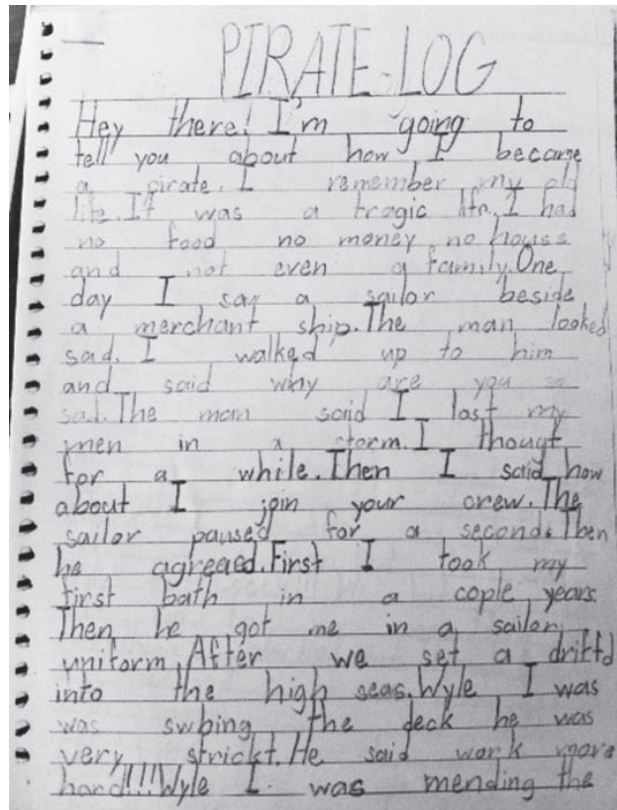 PIRATE LOG
Hey there! I'm going to
tell you about how I became
a pirate. I remember my old
life. It was a tragic life. I had
no food no money no house
and not even a family. One
day I say a sailor beside
a merchant ship. The man looked
sad. I walked up to him
and said why are you so
sad. The man said I lost my
men in a storm. I thougt
for a while. Then I said how
about I join your crew. The
sailor paused for a second. Then
he agreeed. First I took my
first bath in a cople years.
Then he got me in a sailor
uniform. After we set a driftd
into the high seas. Wyle I was
was swbing the deck he was
very strickt. He said work more
hard!!!! Wyle I was mending the